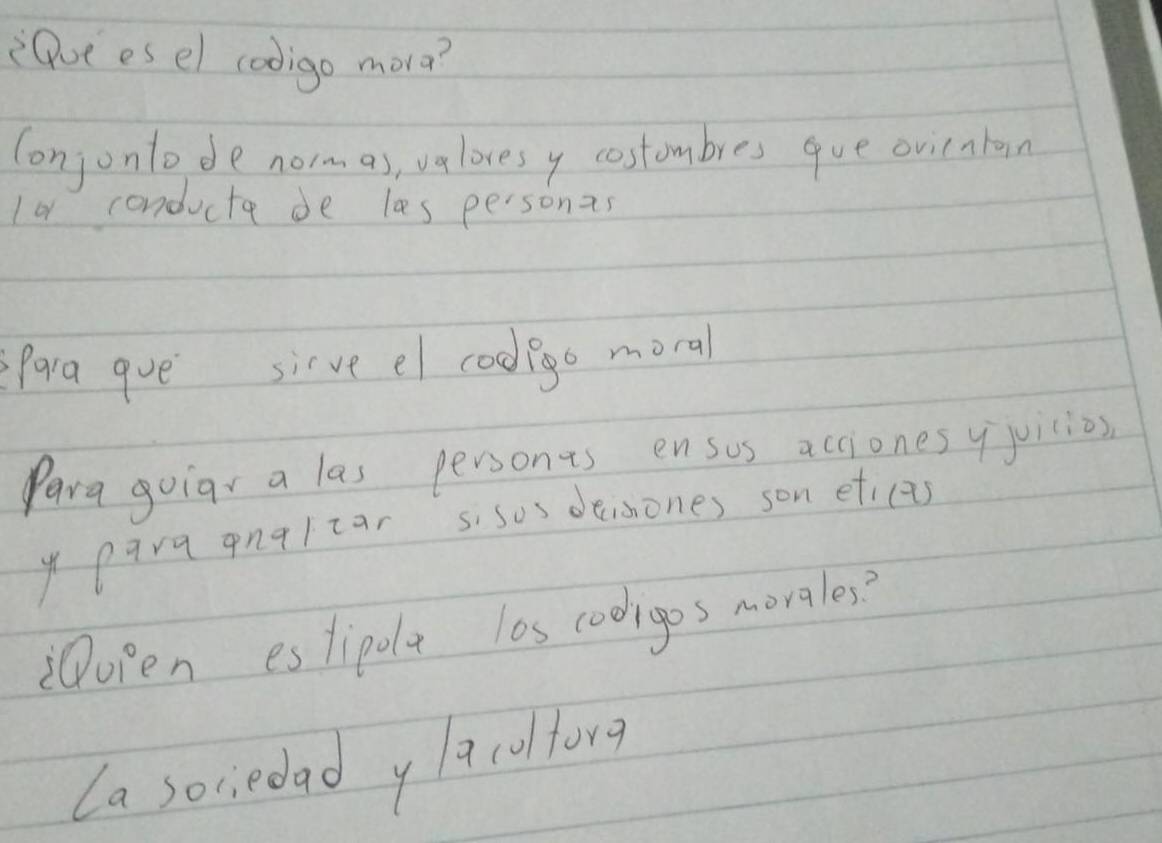 ¿Que es el codigo mora?
Conjunto de normas, valores y costumbres que orientan
la conducta de las personas
¿Para que sirve el codigo moral
Para guiar a las personas en sus acciones y juicios,
y para analizar si sus decisiones son eticas
¿Quien estipula los codigos morales?
La sociedad y la cultura